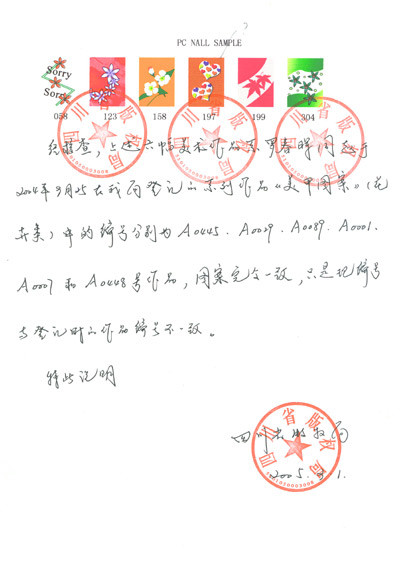 PC NALL SAMPLE
Sorry
Sorry
058 123 158 197 199 304
经核查，上述六幅美术作品系罗春晖同志于
2004年9月25在我局登记的系列作品《美甲图案》（花
卉类）中的编号分别为A0445、A0029、A0089、A0001、
A0007和A0448号作品，图案完全一致，只是现编号
与登记时的作品编号不一致。
特此说明
四川省版权局
2005. .1.
四川省版权局
四川省版权局
四川省版权局
四川省版权局